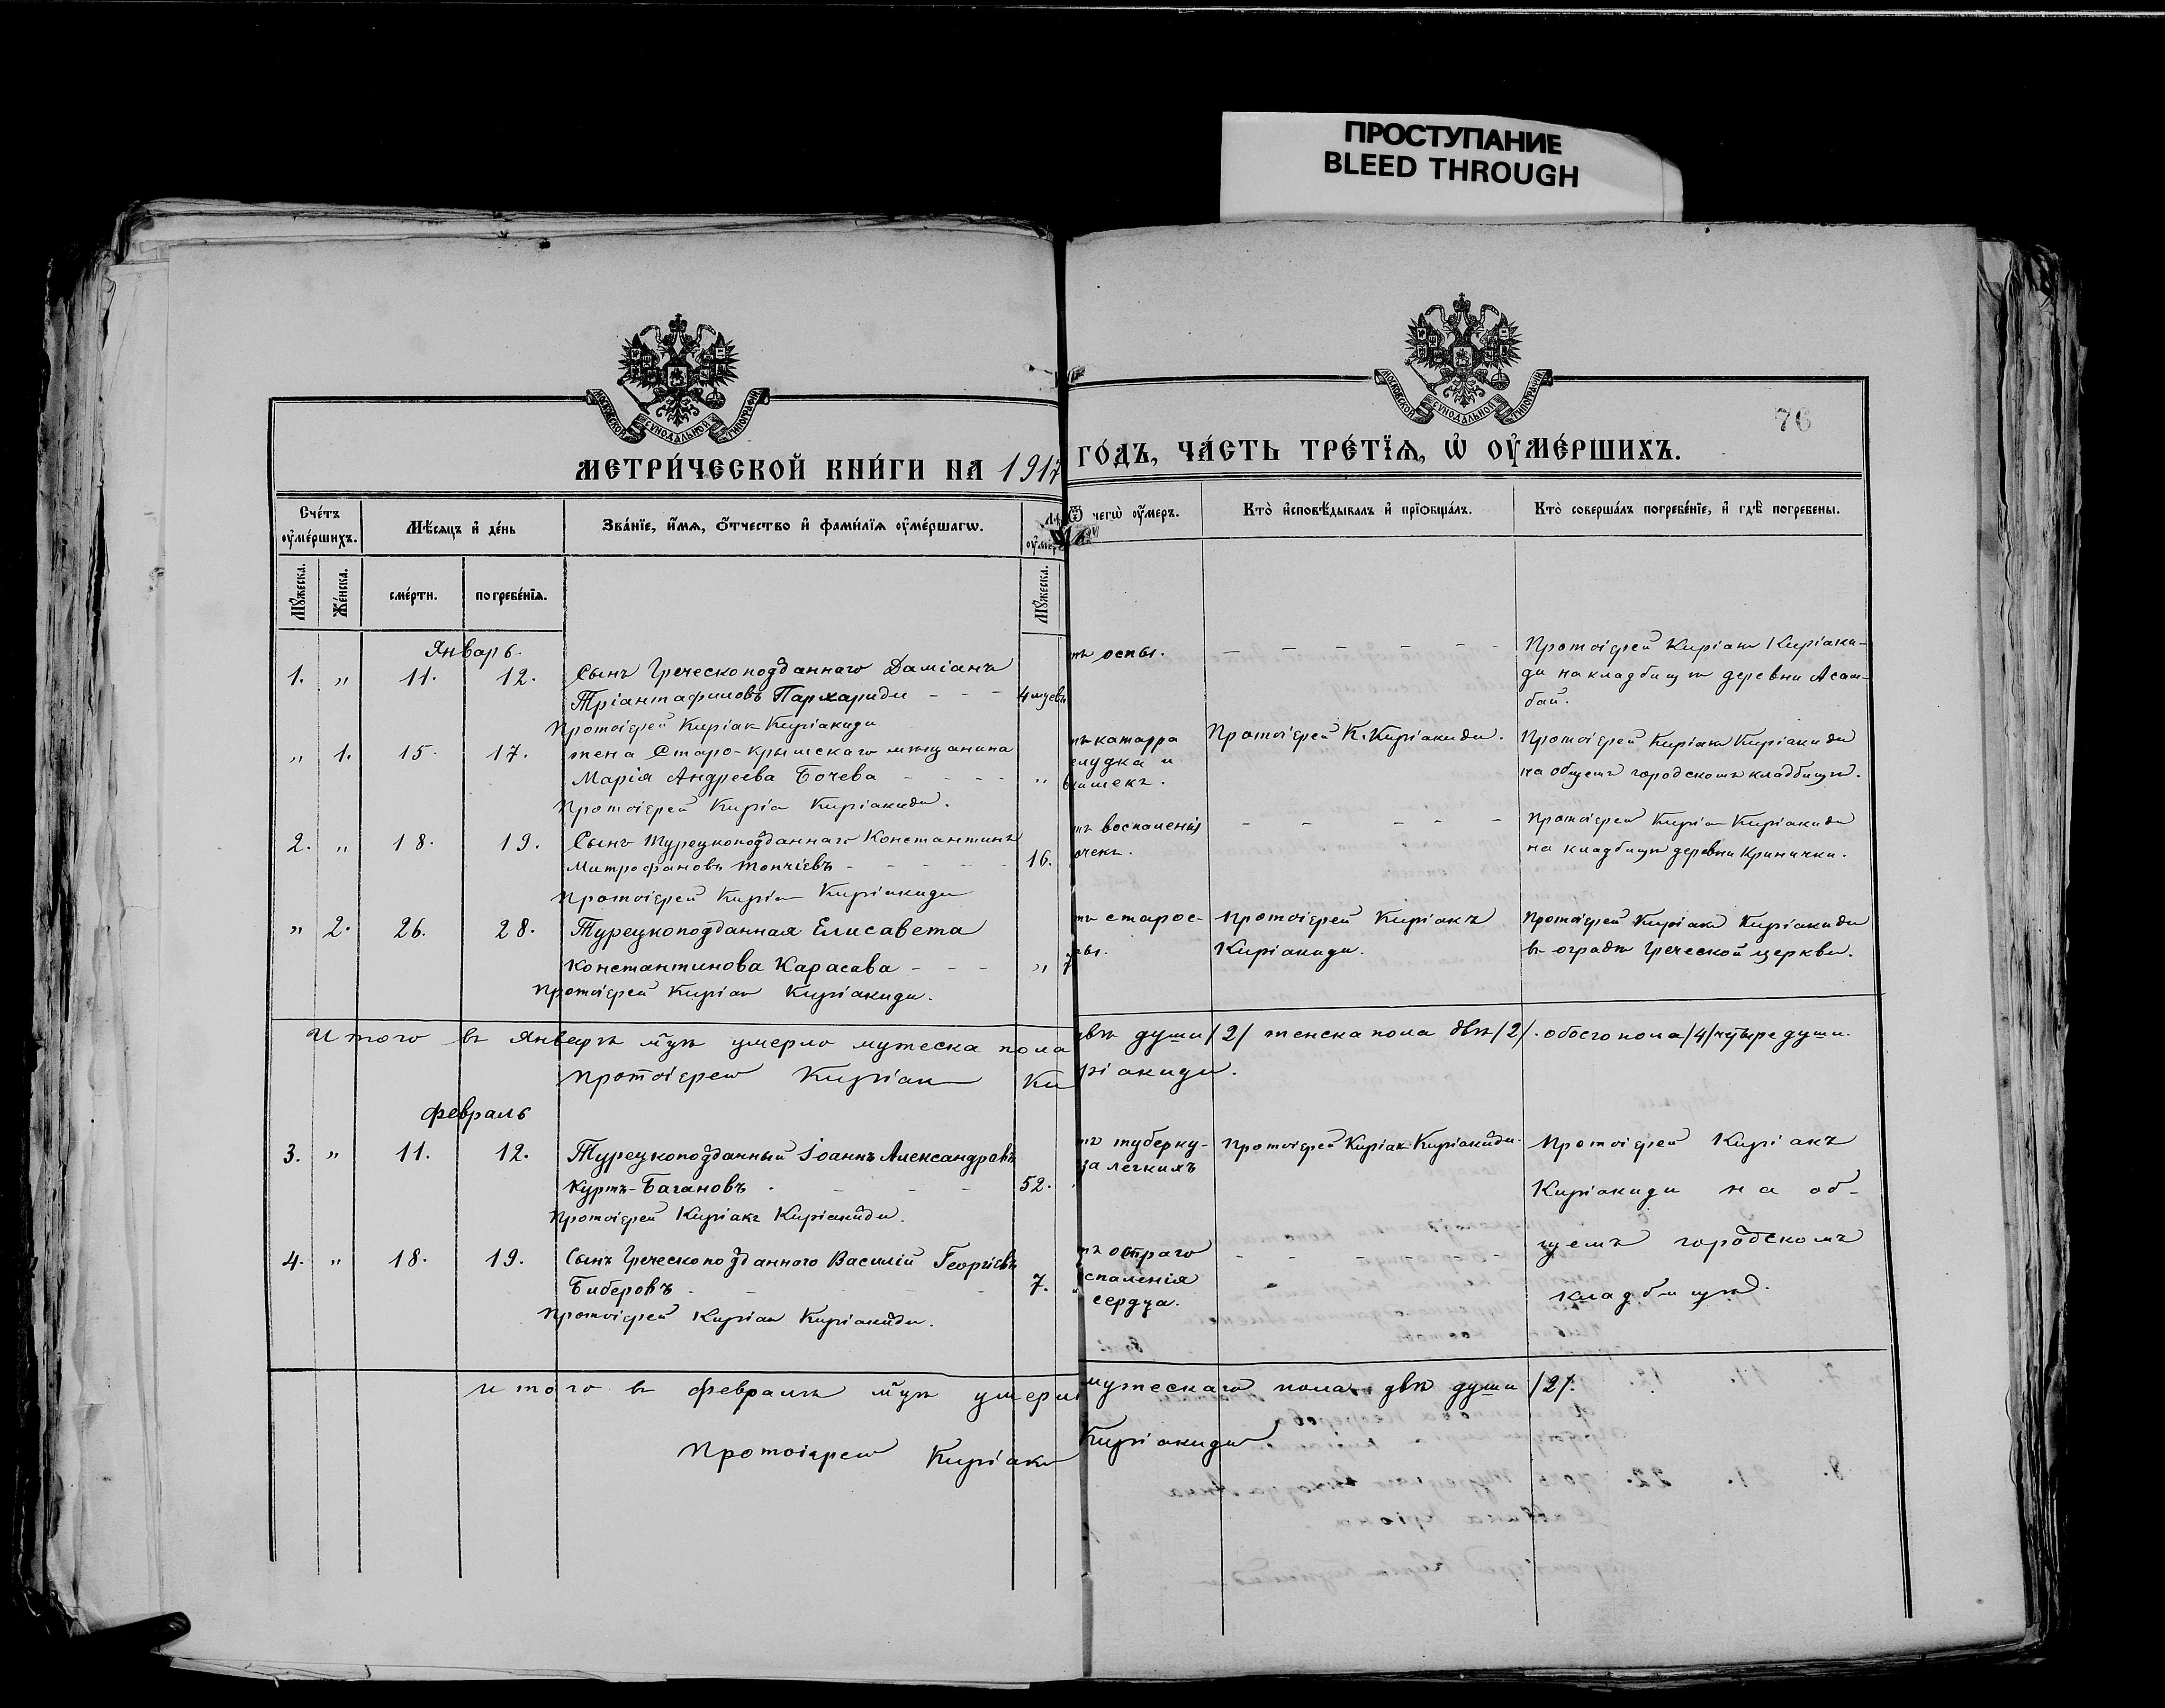 ПРОСТУПАНИЕ
BLEED THROUGH
МОСКОВСКОЙ СѴНОДАЛЬНОЙ ТИПОГРАФІИ
МОСКОВСКОЙ СѴНОДАЛЬНОЙ ТИПОГРАФІИ
76
МЕТРИ́ЧЕСКОЙ КНИ́ГИ НА 1917 ГО́ДЪ, ЧА́СТЬ ТРЕ́ТЇѦ, Ѡ҆ ОУ҆МЕ́РШИХЪ.
Счéтъ оу҆мéршихъ.
Мѣ́сяцъ и҆ дéнь
Звáнїе, и҆́мѧ, ѻ҆́тчество и҆ фамѝлїѧ оу҆мéршагѡ.
Ѿ чегѡ̀ оу҆́меръ.
Ктò и҆сповѣ́дывалъ и҆ прїѻбщáлъ.
Ктò совершáлъ погребéнїе, и҆ гдѣ̀ погребены.
Мꙋ́жеска.
Жéнска.
смéрти.
погребéнїѧ.
Мꙋ́жеска.
Январь.
1. " 11. 12. Сынъ Греческоподданнаго Даміанъ
Тріантафиловъ Пархариди - - - 4 мѣсяцевъ
Протоіерей Киріакъ Киріакиди
тъ оспы. - - - - - -
Протоіерей Киріакъ Киріаки-
ди на кладбищѣ деревни Асан-
бай.
" 1. 15. 17. жена Старо-Крымскаго мѣщанина
Марія Андреева Бочева - - - - "
Протоіерей Киріакъ Киріакиди.
тъ катарра
елудка и
кишекъ.
Протоіерей К. Киріакиди.
Протоіерей Киріакъ Киріакиди
на общемъ городскомъ кладбищѣ.
2. " 18. 19. Сынъ Турецкоподданнаго Константинъ
Митрофановъ Топчіевъ - - - - 16.
Протоіерей Киріакъ Киріакиди
тъ воспаленія
очекъ.
- - - - -
Протоіерей Киріакъ Киріакиди
на кладбищѣ деревни Кринички.
" 2. 26. 28. Турецкоподданная Елисавета
Константинова Карасава - - - " 7
Протоіерей Киріакъ Киріакиди.
тъ старос-
Протоіерей Киріакъ
Киріакиди.
Протоіерей Киріакъ Киріакиди
въ оградѣ Греческой церкви.
Итого въ Январѣ м̃цѣ умерло мужеска пола двѣ души /2/ женска пола двѣ /2/. обоего пола /4/ четыре души.
Протоіерей Киріакъ Киріакиди.
Февраль
3. " 11. 12. Турецкоподданный Іоаннъ Александровъ
Куртъ-Багановъ - - - 52.
Протоіерей Киріакъ Киріакиди.
тъ туберку-
за легкихъ
Протоіерей Киріакъ Киріакиди.
Протоіерей Киріакъ
Киріакиди на об-
щемъ городскомъ
кладбищѣ.
4. " 18. 19. Сынъ Греческоподданного Василій Георгіевъ
Биберовъ - - - - 7.
Протоіерей Киріакъ Киріакиди.
тъ остраго
спаленія
сердца.
- - - - -
Итого въ Февралѣ м̃цѣ умерло мужескаго пола двѣ души /2/.
Протоіерей Киріакъ Киріакиди